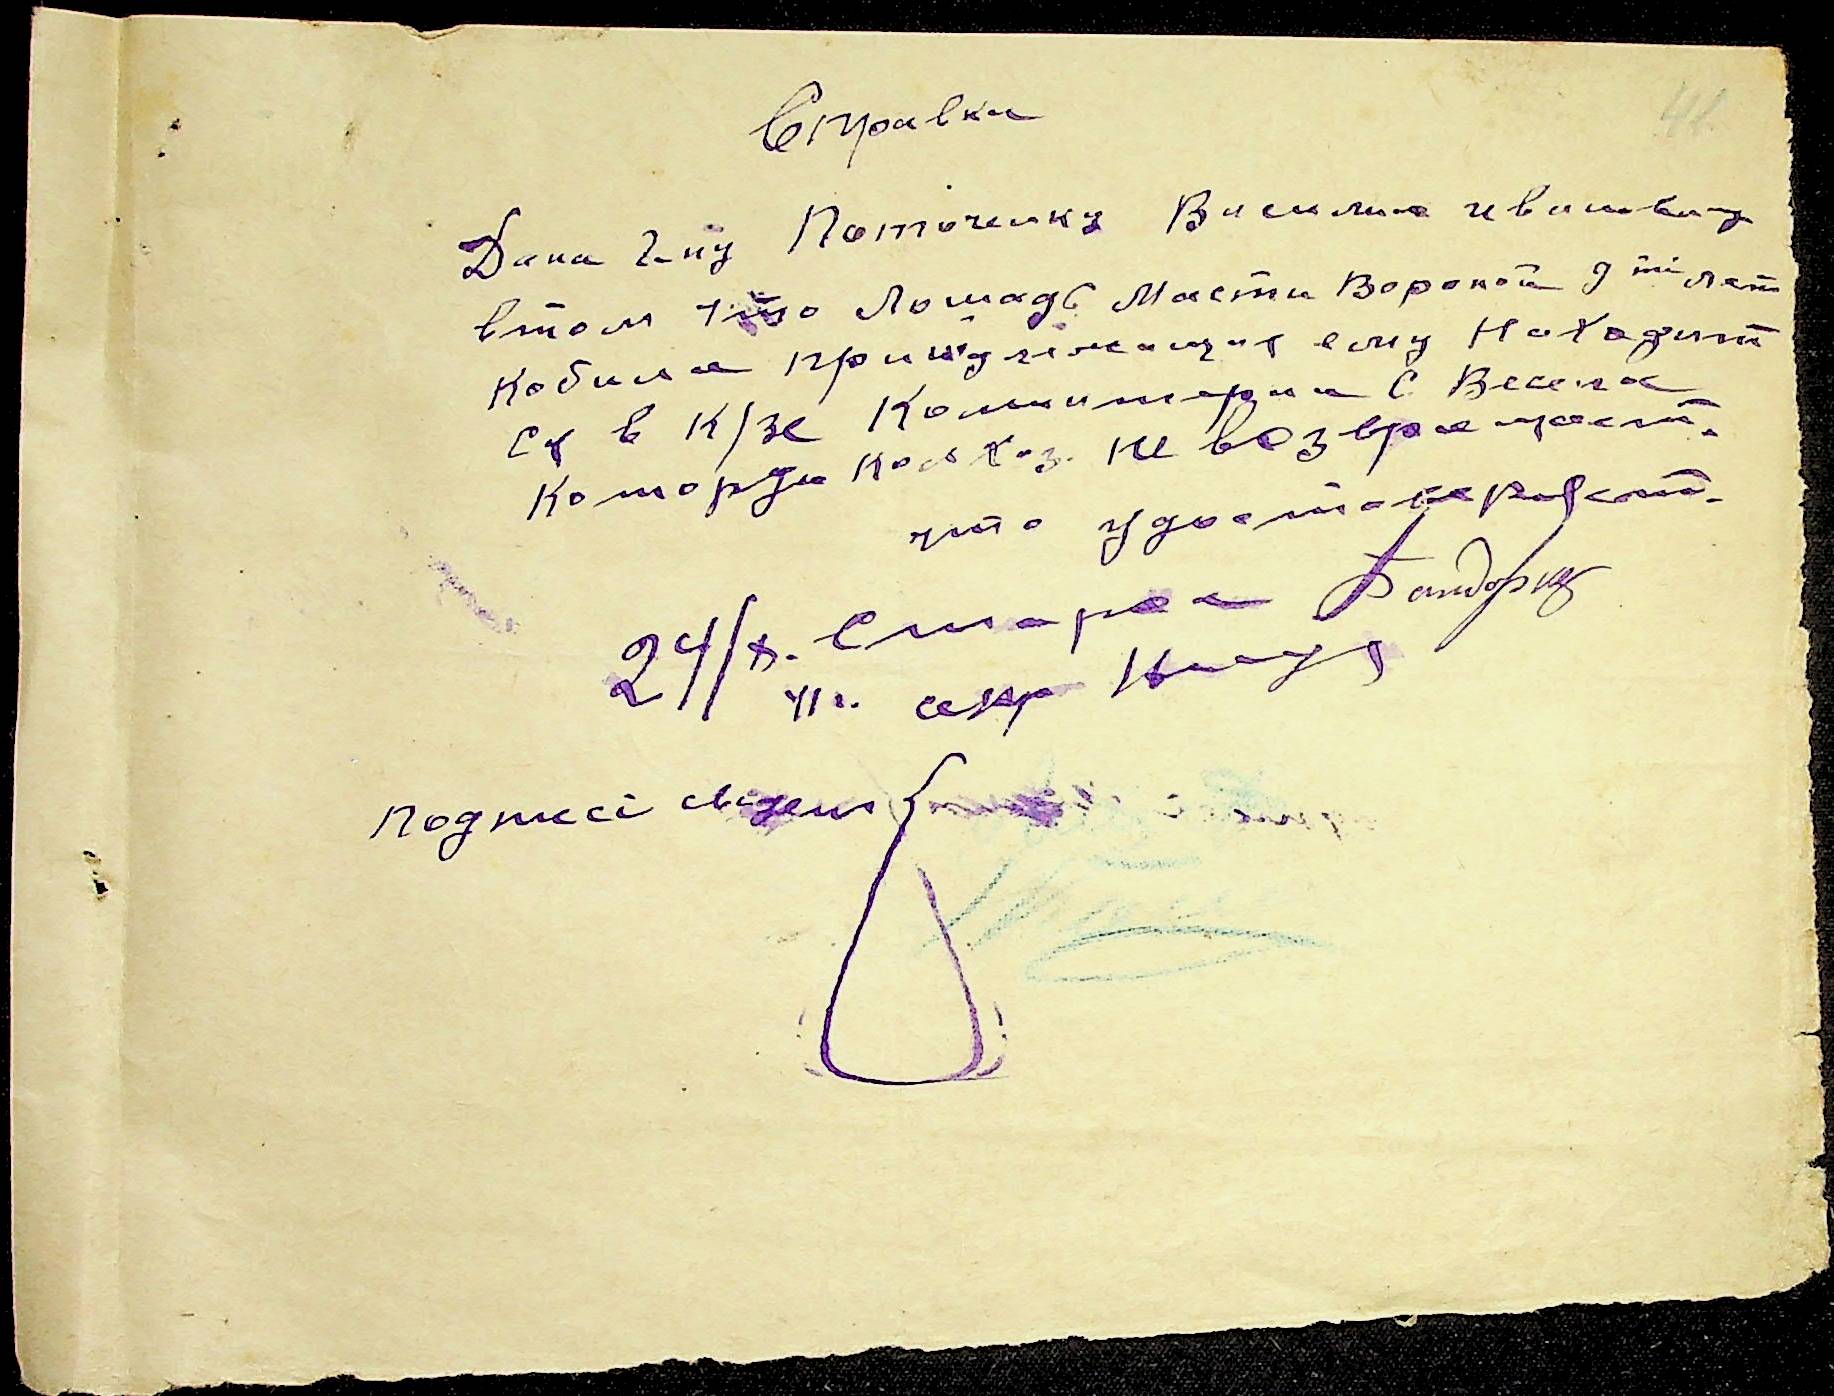 Справка
Дана г-ну Поточенку Василию ивановичу
втом что Лошадь Масти Вороной 9 ти лет
Кобила принадлежащая ему Находит
ся в К/зе Коминтерна С Весела
Которую Колхоз. не возвращает.
что удостоверяет.
24/X. Староста
41г. секр
Подписи сведени